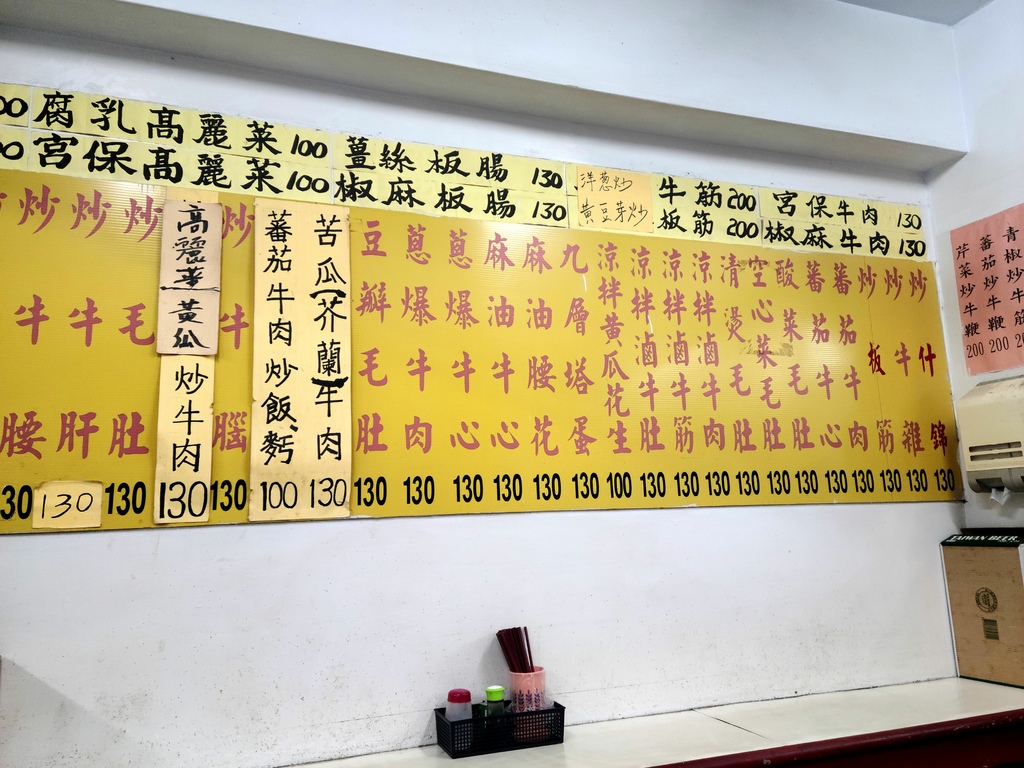 00 腐乳高麗菜100 薑絲板腸 130
00 宮保高麗菜100 椒麻板腸 130
洋葱炒
黃豆芽炒
牛筋200 宮保牛肉130
板筋200 椒麻牛肉130
炒牛腰 30
炒牛肝 130
炒毛肚 130
高麗菜黃瓜炒牛肉 130
炒牛腦 130
蕃茄牛肉炒飯、麵 100
苦瓜芥蘭牛肉 130
豆瓣毛肚 130
蔥爆牛肉 130
蔥爆牛心 130
麻油牛心 130
麻油腰花 130
九層塔蛋 130
涼拌黃瓜花生 100
涼拌滷牛肚 130
涼拌滷牛筋 130
涼拌滷牛肉 130
清燙毛肚 130
空心菜毛肚 130
酸菜毛肚 130
蕃茄牛心 130
蕃茄牛肉 130
炒板筋 130
炒牛雜 130
炒什錦 130
芹菜炒牛鞭 200
蕃茄炒牛鞭 200
青椒炒牛筋 20
TAIWAN BEER